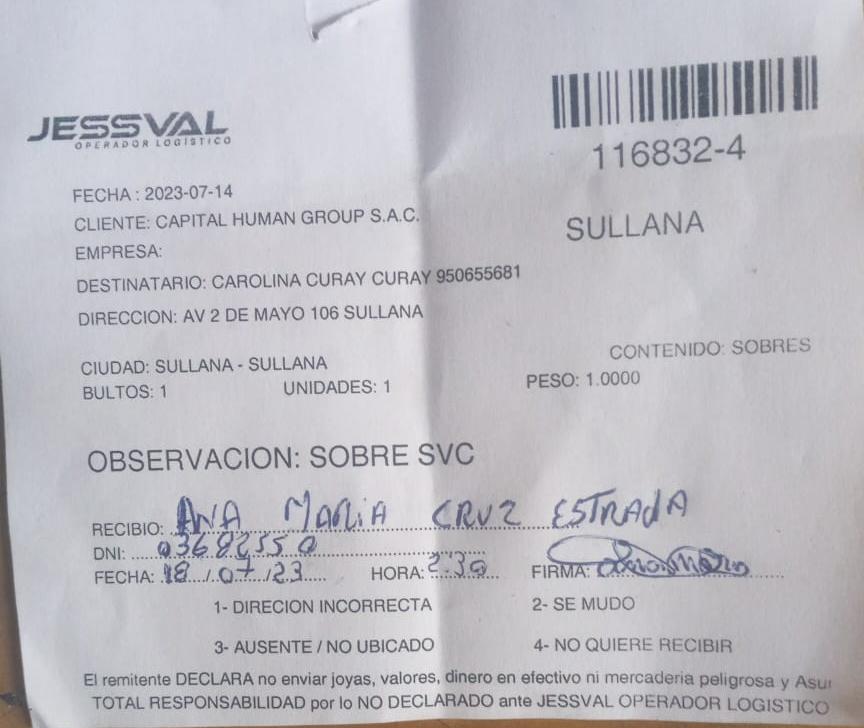 JESSVAL
OPERADOR LOGISTICO
116832-4
FECHA : 2023-07-14
CLIENTE: CAPITAL HUMAN GROUP S.A.C.
SULLANA
EMPRESA:
DESTINATARIO: CAROLINA CURAY CURAY 950655681
DIRECCION: AV 2 DE MAYO 106 SULLANA
CIUDAD: SULLANA - SULLANA
CONTENIDO: SOBRES
BULTOS: 1 UNIDADES: 1 PESO: 1.0000
OBSERVACION: SOBRE SVC
RECIBIO: ANA MARIA CRUZ ESTRADA
DNI:
FECHA: 18/07/23 HORA: 2:30 FIRMA:
1- DIRECION INCORRECTA 2- SE MUDO
3- AUSENTE / NO UBICADO 4- NO QUIERE RECIBIR
El remitente DECLARA no enviar joyas, valores, dinero en efectivo ni mercaderia peligrosa y Asu
TOTAL RESPONSABILIDAD por lo NO DECLARADO ante JESSVAL OPERADOR LOGISTICO